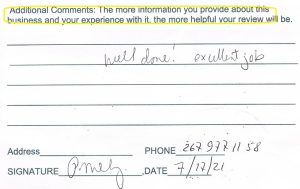 Additional Comments: The more information you provide about this
business and your experience with it, the more helpful your review will be.
well done! excellent job
Address
PHONE 267 977 11 58
SIGNATURE
DATE 7/17/21